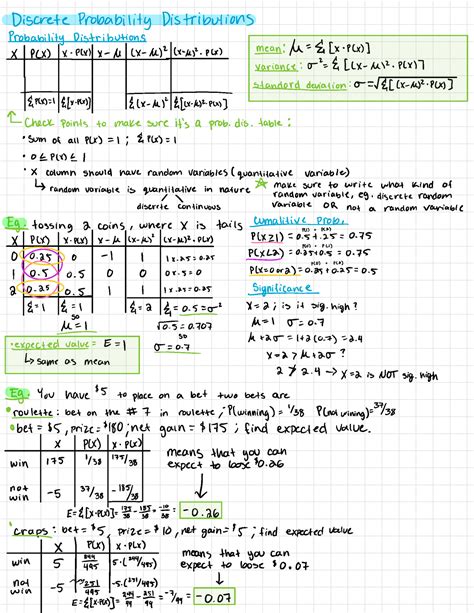 Discrete Probability Distributions
Probability Distributions
X P(X) X·P(X) X-μ (X-μ)² (X-μ)²·P(X)
ΣP(X)=1 Σ[X·P(X)] Σ(X-μ)² Σ(X-μ)²·P(X)
mean: μ = Σ[X·P(X)]
variance: σ² = Σ[(X-μ)²·P(X)]
standard deviation: σ = √Σ[(X-μ)²·P(X)]
Check Points to make sure it's a prob. dis. table:
• Sum of all P(X) = 1 ; ΣP(X) = 1
• 0 ≤ P(X) ≤ 1
• X column should have random variables (quantitative variable)
↳ random variable is quantitative in nature
discrete continuous
☆ make sure to write what kind of
random variable, eg. discrete random
variable OR not a random variable
Eg. tossing 2 coins, where X is tails
X P(X) X·P(X) X-μ (X-μ)² (X-μ)²·P(X)
0 0.25 0 -1 1 1x.25=0.25
1 0.5 0.5 0 0 0x.5=0
2 0.25 0.5 1 1 1x.25=0.25
Σ=1 Σ=1 Σ=2 Σ=0.5=σ²
so
μ=1
√0.5=0.707
so
σ=0.7
• expected value = E = 1
↳ same as mean
Cumulitive Prob.
P(X≥1) = 0.5+.25 = 0.75
P(X<2) = 0.25+0.5 = 0.75
P(X=0 or 2) = 0.25+0.25 = 0.5
Significance
X=2; is it sig. high?
μ=1 σ=0.7
μ+2σ = 1+2(0.7) = 2.4
X=2 > μ+2σ ?
2 ≯ 2.4 → X=2 is NOT sig. high
Eg. You have $5 to place on a bet two bets are
• roulette: bet on the # 7 in roulette; P(winning) = 1/38 P(not wining) = 37/38
• bet = $5, prize = $180; net gain = $175 ; find expected value.
X P(X) X·P(X)
win 175 1/38 175/38
not win -5 37/38 -185/38
E=Σ[X·P(X)] = 175/38 - 185/38 = -10/38 = -0.26
means that you can
expect to loose $0.26
• craps: bet = $5, prize = $10, net gain = $5 ; find expected value
X P(X) X·P(X)
win 5 244/495 5·(244/495)
not win -5 251/495 -5·(251/495)
E=Σ[X·P(X)] = 244/99 - 251/99 = -7/99 = -0.07
means that you can
expect to loose $0.07